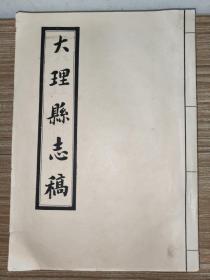 大理縣志稿